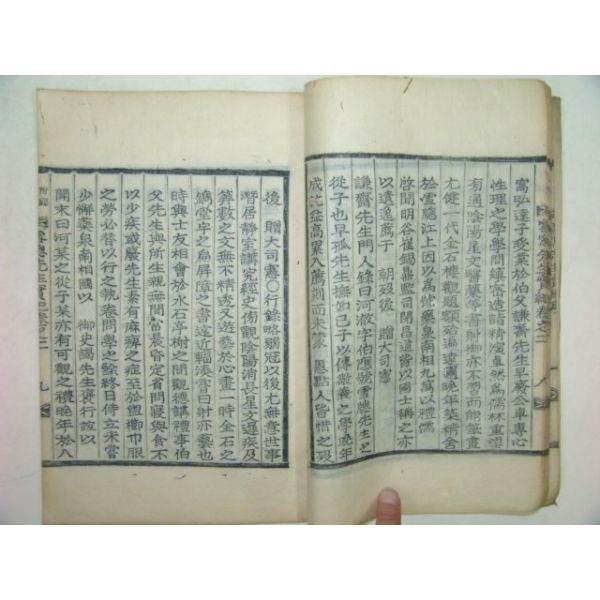 子受業於伯父謙齋先生早廢公車專心
性理之學學問 密造詣精深 爲儒林重望
有通陰陽星文醫藥等書 御亦不習而能筆畫
尤健一代金石樓觀題額殆遍遠 晩年築精舍
於雪牕江上因以爲號藥泉南相九萬以禮儒
啓聞明谷崔錫鼎 司閔昌道皆以國士稱之亦
以遺逸薦于 朝歿後 贈大司憲
謙齋先生門人錄曰河澈字伯應號雪牕先生之
從子也早孤先生撫如己子以傳敬義之學晩年
成 益高累入薦剡而未 恩點人皆惜之歿
後 贈大司憲○行錄略弱冠以後尤無意世事
潛居靜室講究經史傍觀陰陽消長星文遲疾及
算數之文無不精透又遊藝於心畫一時金石之
鐫堂宇之扁屛障之書遠近輻湊嘗曰射亦藝也
時與士友相會於水石亭榭之間觀德講禮事伯
父先生與所生親無間 晨昏定省問寢興食不
以少疾或廢先生素有痲痺之症至於盥櫛巾服
之勞必替以行之執卷問學之餘終日侍立未嘗
少懈藥泉南相國以 御史謁先生褒行誼以
聞末曰河某之從子某亦有可觀之禮晩年於八
先生實紀卷之二 九